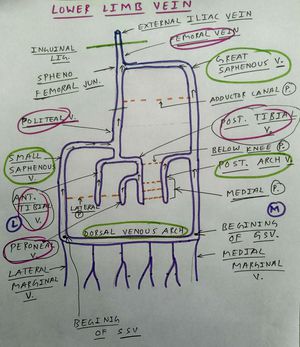 LOWER LIMB VEIN
EXTERNAL ILIAC VEIN
FEMORAL VEIN
INGUINAL
LIG.
SPHENO
FEMORAL JUN.
GREAT
SAPHENOUS V.
ADDUCTOR CANAL (P.)
POLITEAL V.
POST. TIBIAL
V.
SMALL
SAPHENOUS
V.
BELOW KNEE (P.)
POST. ARCH V.
ANT.
TIBIAL
V.
LATERAL
P.
MEDIAL (P.)
L
M
PERONEAL
V.
DORSAL VENOUS ARCH
BEGINING
OF GSV.
LATERAL
MARGINAL
V.
MEDIAL
MARGINAL
V.
BEGINIG
OF SSV